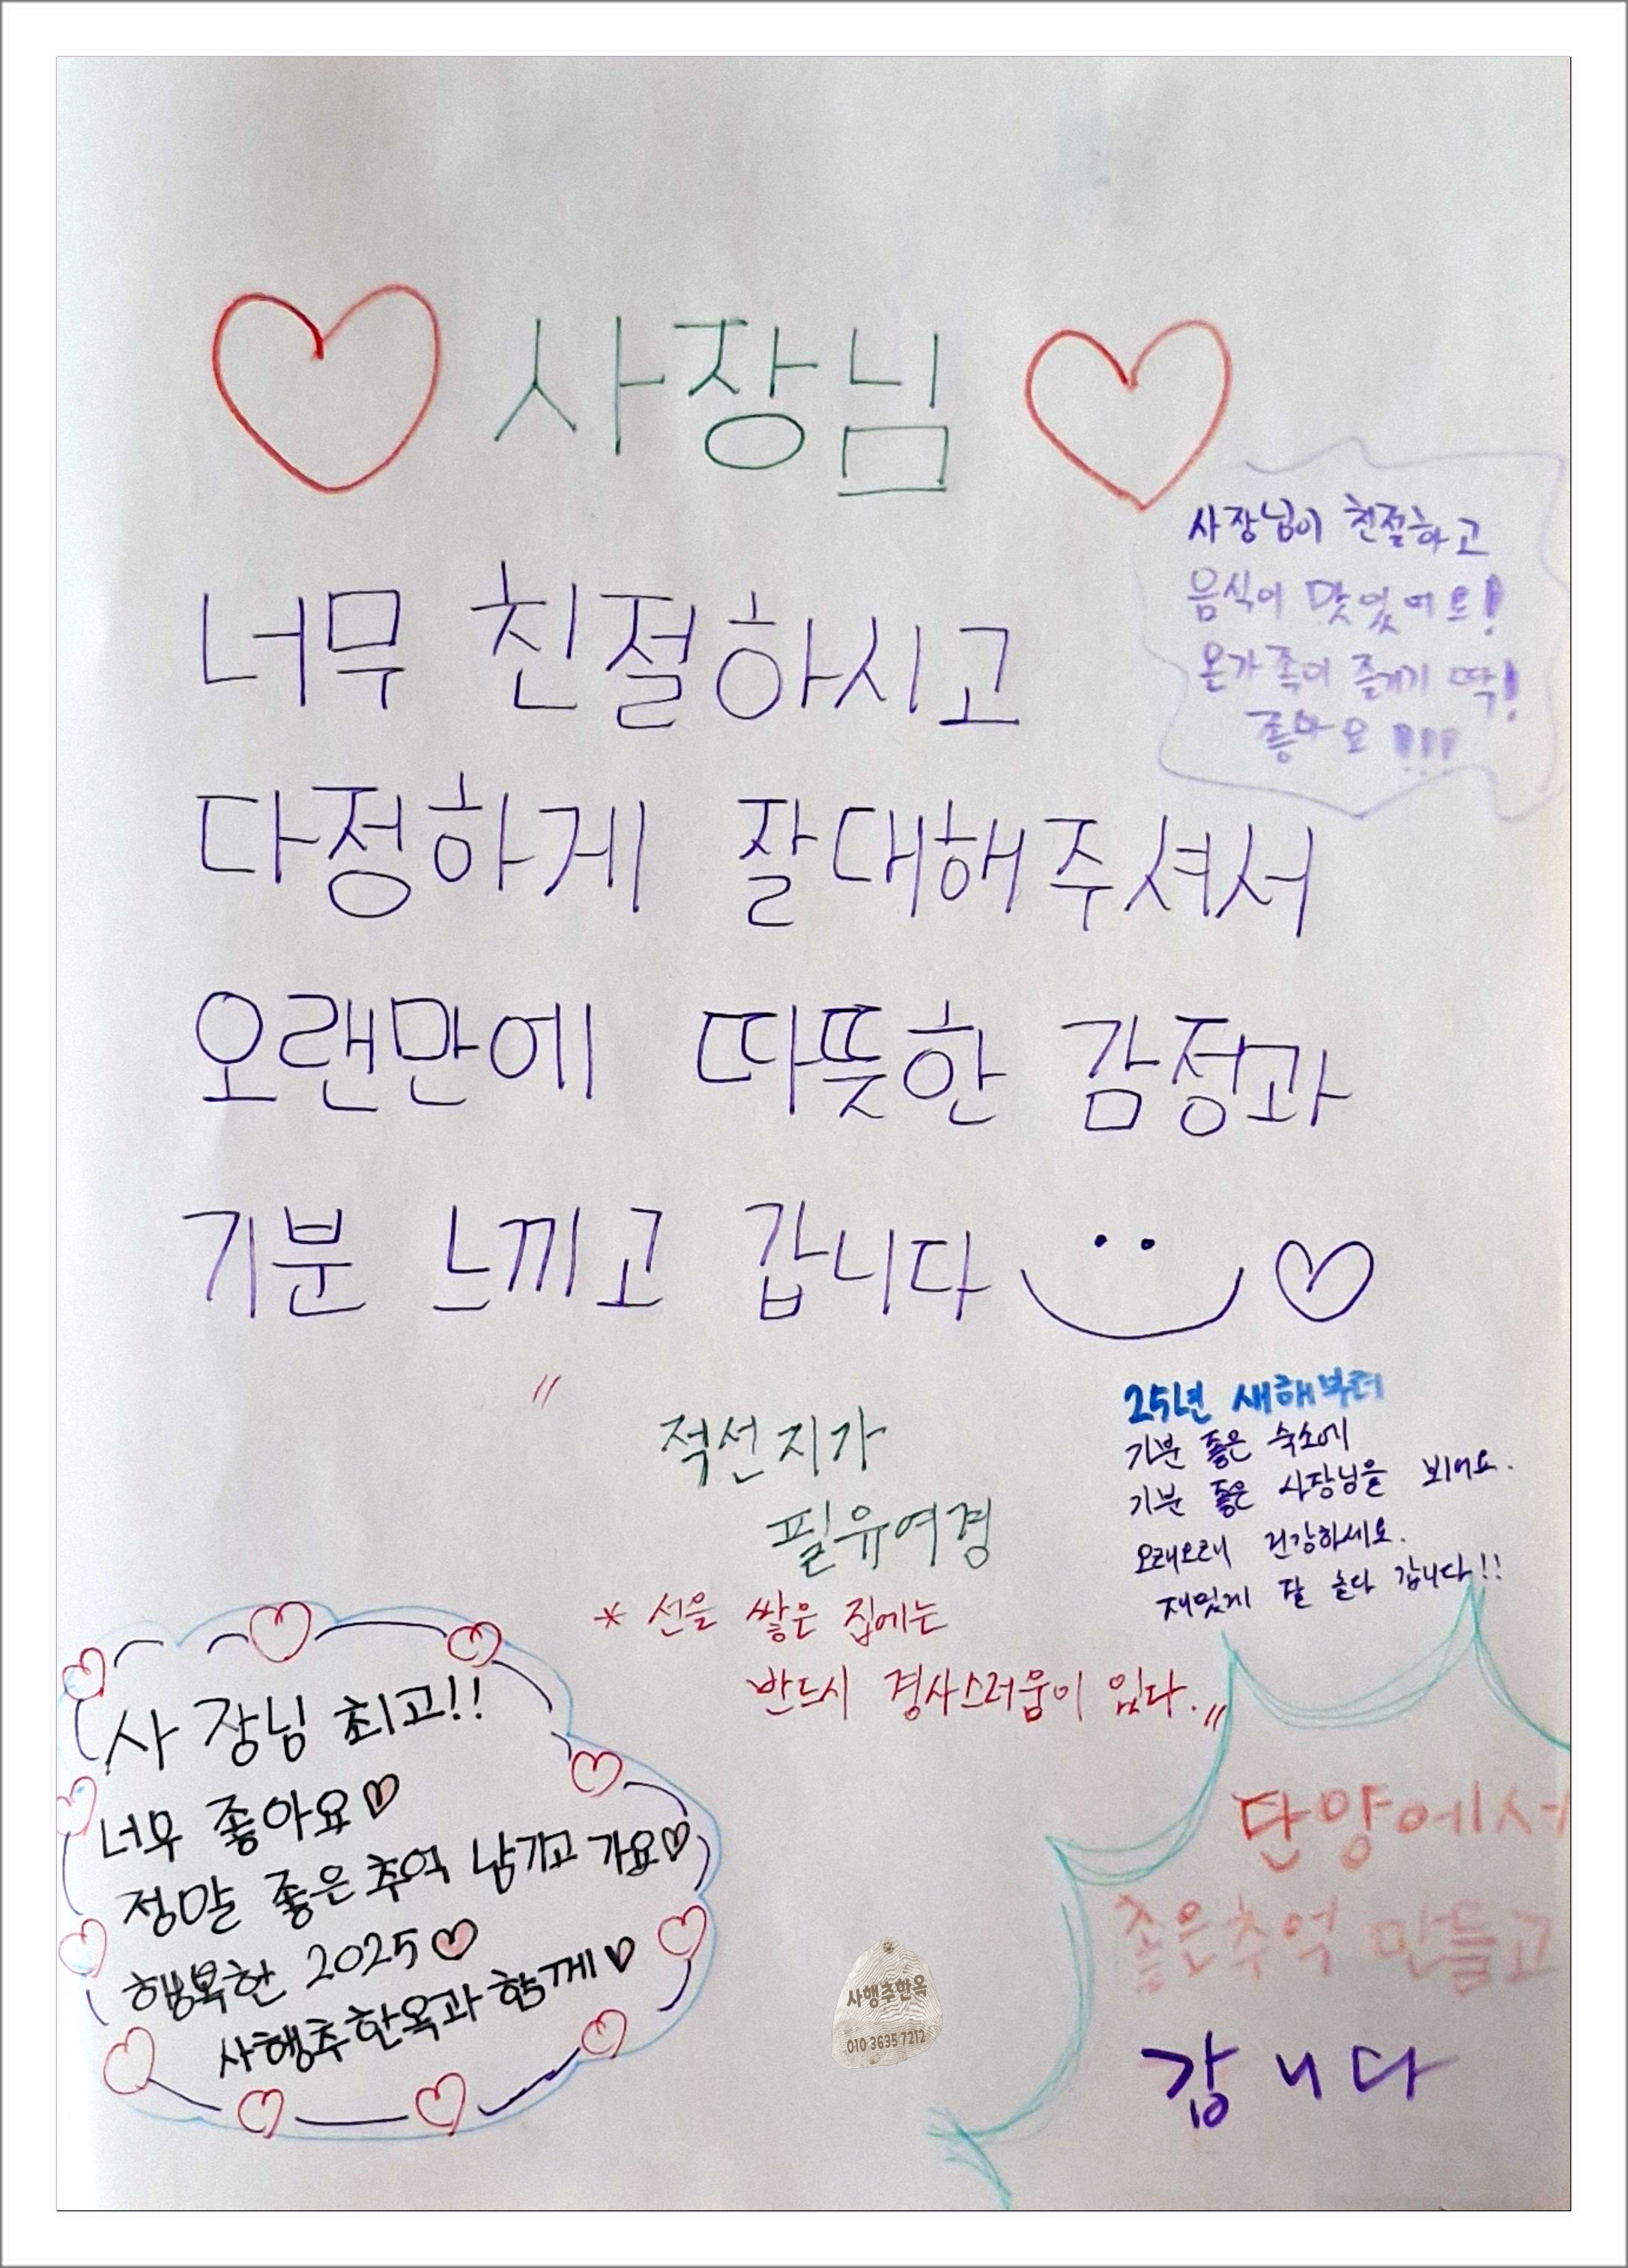 사장님
너무 친절하시고
다정하게 잘대해주셔서
오랜만에 따뜻한 감정과
기분 느끼고 갑니다
사장님이 친절하고
음식이 맛있어요!
온가족이 즐기기 딱!
좋아요!!!
"적선지가
필유여경
* 선을 쌓은 집에는
반드시 경사스러움이 있다."
25년 새해부터
기분 좋은 숙소에
기분 좋은 사장님을 뵈어요.
오래오래 건강하세요.
재밌게 잘 놀다 갑니다!!
사장님 최고!!
너무 좋아요♡
정말 좋은추억 남기고 가요♡
행복한 2025♡
사행추한옥과 함께♡
단양에서
좋은추억 만들고
갑니다
사행추한옥
010 3635 7212